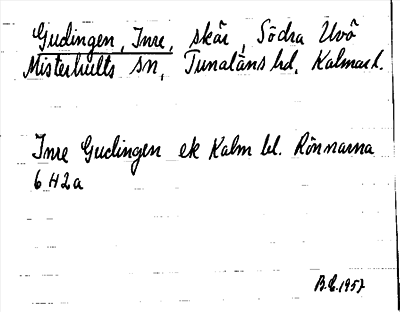 Gudingen, Inre, skär, Södra Uvö
Misterhults sn, Tunaläns hd, Kalmar l.
Inre Gudingen ek Kalm bl. Rönnarna
6 H2a
B.E. 1957